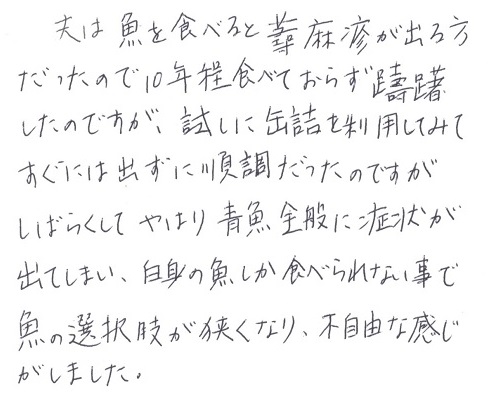 夫は魚を食べると蕁麻疹が出る方
だったので10年程食べておらず躊躇
したのですが、試しに缶詰を利用してみて
すぐには出ずに順調だったのですが
しばらくして やはり 青魚全般に症状が
出てしまい、白身の魚しか食べられない事で
魚の選択肢が狭くなり、不自由な感じ
がしました。